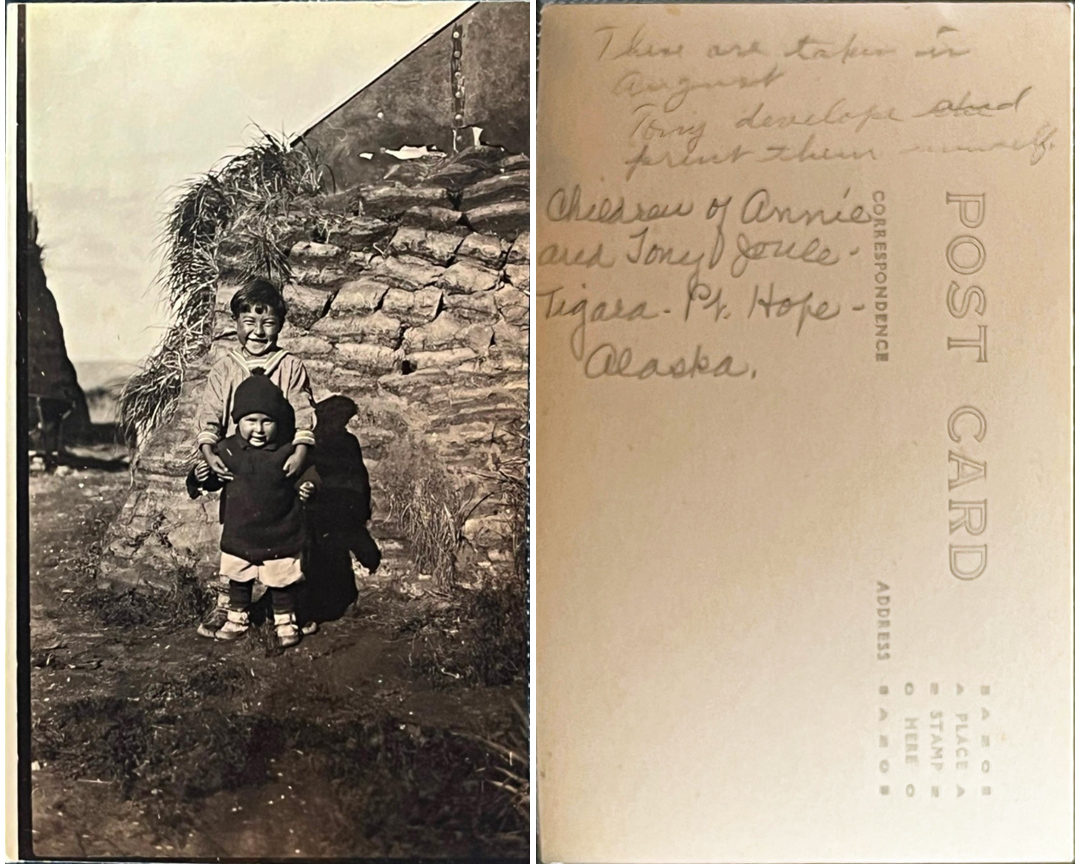 These are taken in
August
Tony develope and
print them himself.
Children of Annie
and Tony Joule -
Tigara - Pt. Hope -
Alaska.
POST CARD
CORRESPONDENCE
ADDRESS
PLACE
STAMP
HERE